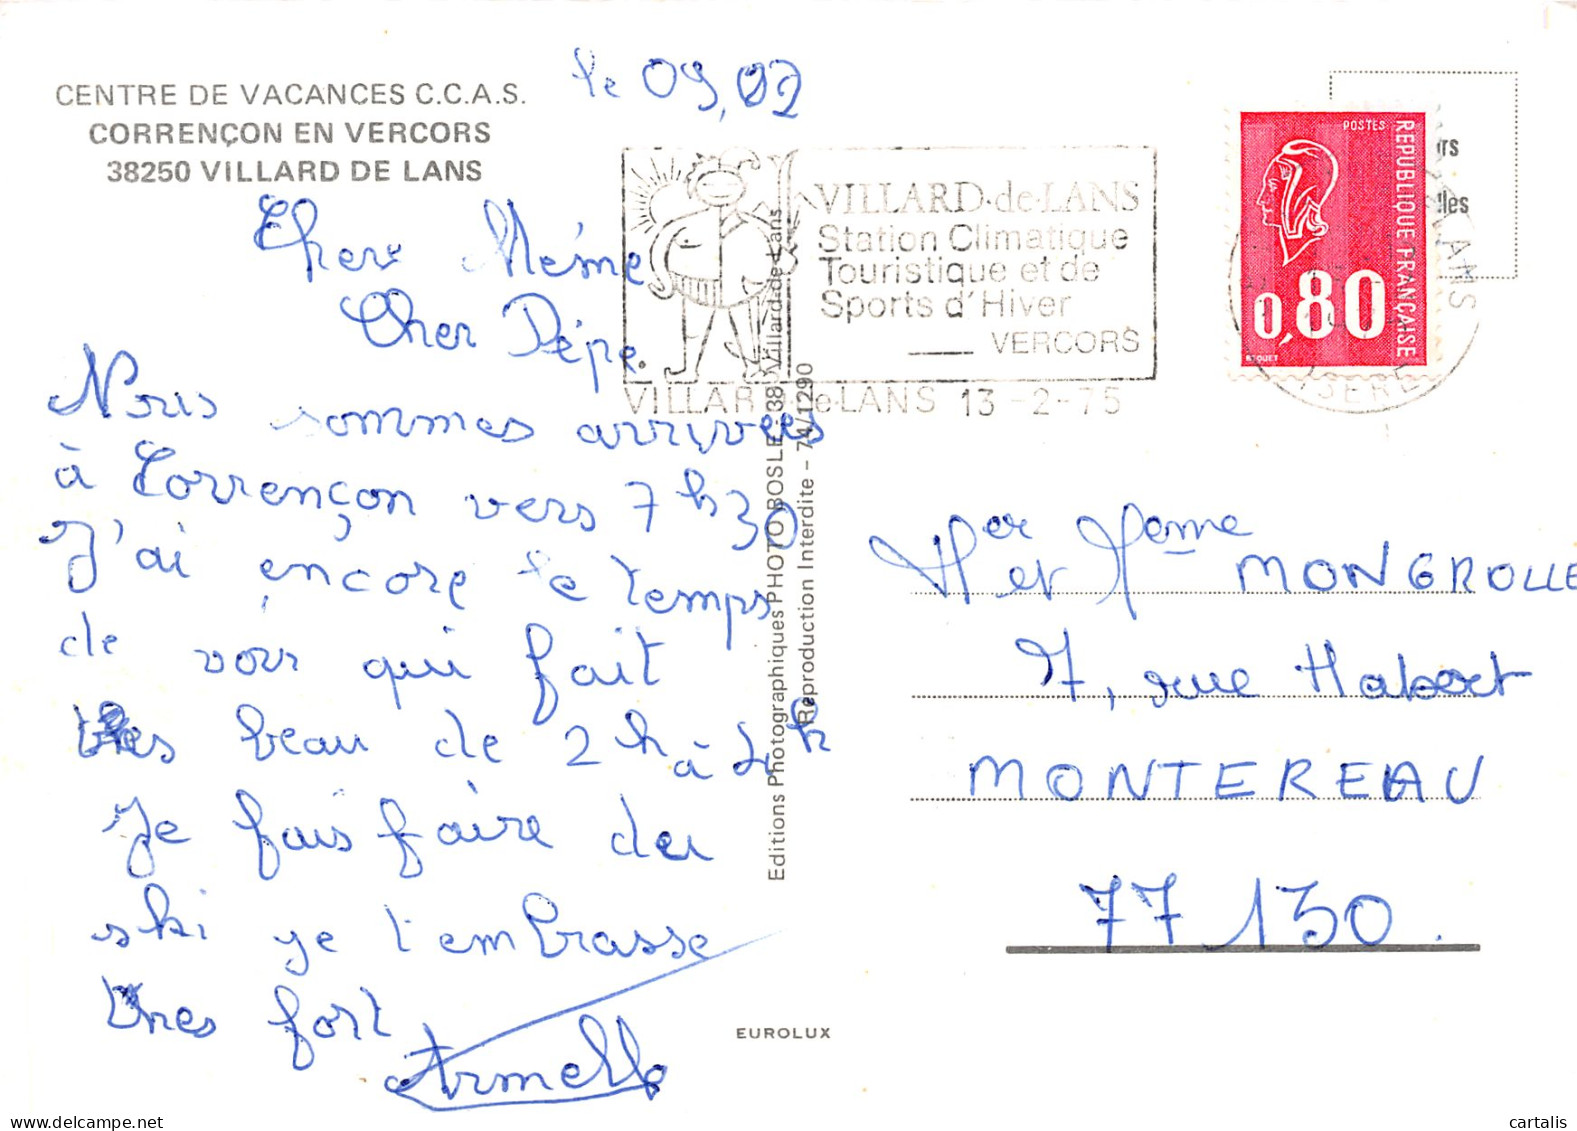 le 09,02
CENTRE DE VACANCES C.C.A.S.
CORRENÇON EN VERCORS
38250 VILLARD DE LANS
Cher Mémé
Cher Pépé.
Nous sommes arrivées
à Corrençon vers 7h30
J'ai encore le temps
de voir qui fait
très beau de 2h à 4h
Je fais faire du
ski je t'embrasse
très fort
Armelle
VILLARD-de-LANS
Station Climatique
Touristique et de
Sports d'Hiver
VERCORS
VILLARD-de-LANS 13-2-75
POSTES
REPUBLIQUE FRANÇAISE
0,80
ISERE
Editions Photographiques PHOTO BOSLE - 38 Villard-de-Lans
Reproduction Interdite - 74/1290
Mer et Meme MONGROLLE
7, rue Habert
MONTEREAU
77130.
EUROLUX
www.delcampe.net
cartalis